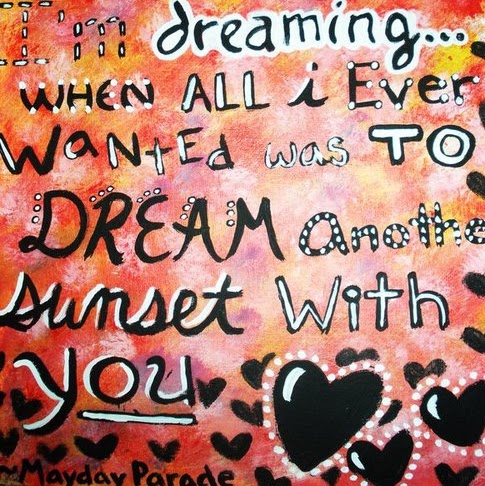 I'm dreaming...
WHEN ALL i Ever
WaNtEd was TO
DREAM anothe
sunset With
you
~Mayday Parade